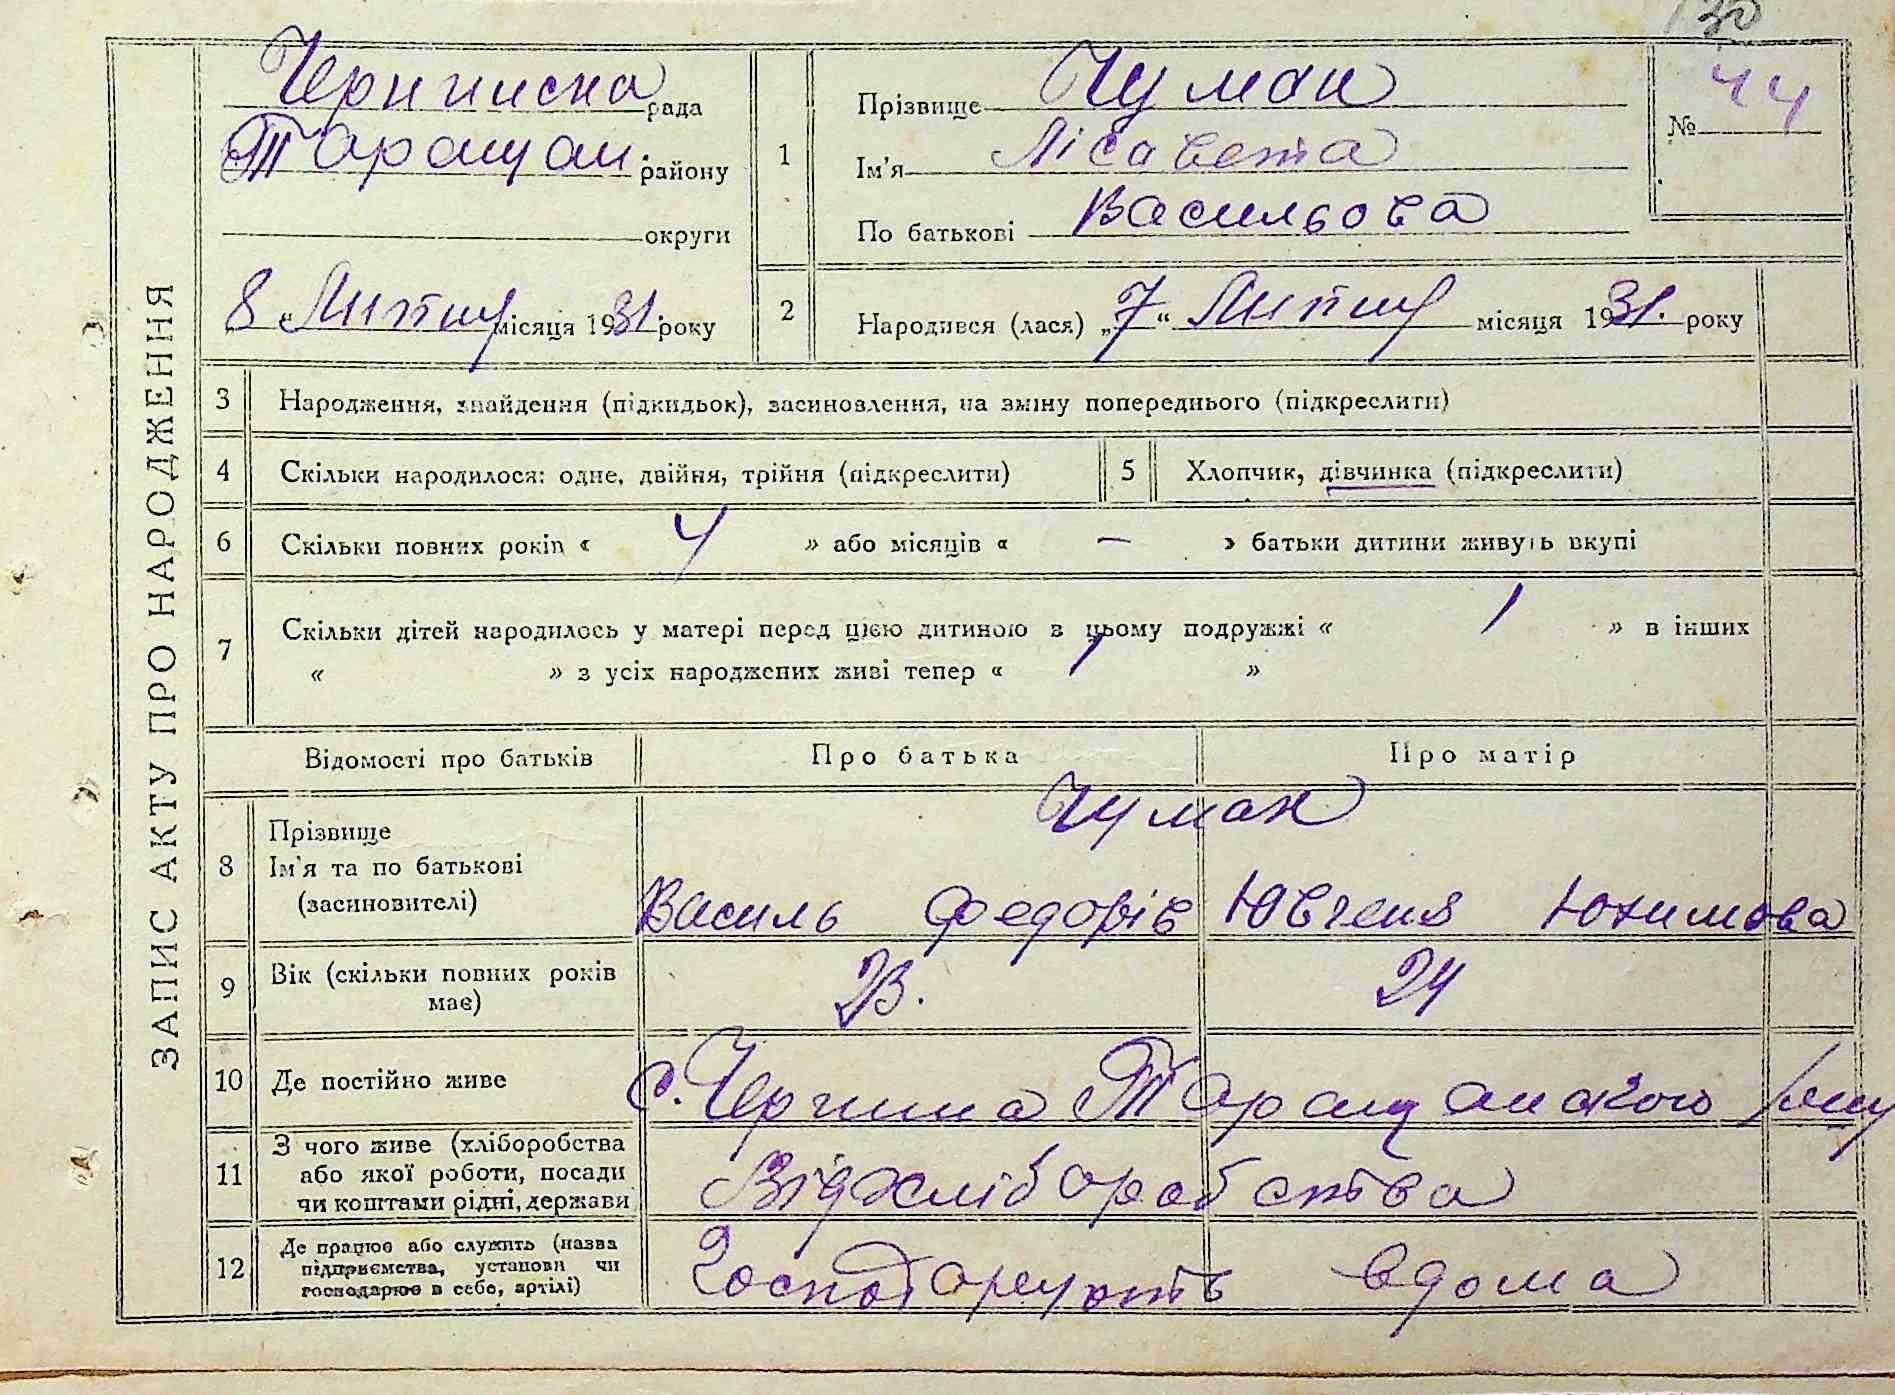 130
ЗАПИС АКТУ ПРО НАРОДЖЕННЯ
Чернинська рада
Таращан. району
округи
„8“ Липня місяця 1931. року
1
Прізвище Чумак
Ім'я Лісавета
По батькові Васильова
№ 44
2
Народився (лася) „7“ Липня місяця 1931. року
3 Народження, знайдення (підкидьок), засиновлення, на зміну попереднього (підкреслити)
4 Скільки народилося: одне, двійня, трійня (підкреслити) 5 Хлопчик, дівчинка (підкреслити)
6 Скільки повних років « 4 » або місяців « – » батьки дитини живуть вкупі
7 Скільки дітей народилось у матері перед цією дитиною в цьому подружжі « 1 » в інших
« » з усіх народжених живі тепер « 1 »
Відомості про батьків Про батька Про матір
8 Прізвище Чумак
Ім'я та по батькові
(засиновителі) Василь Федорів Ювгеня Юхимова
9 Вік (скільки повних років
має) 23. 24
10 Де постійно живе с. Чернина Таращанського р-ну
11 З чого живе (хліборобства
або якої роботи, посади
чи коштами рідні, держави Від хліборобства
12 Де працює або служить (назва
підприємства, установи чи
господарює в себе, артілі) Господарюють вдома